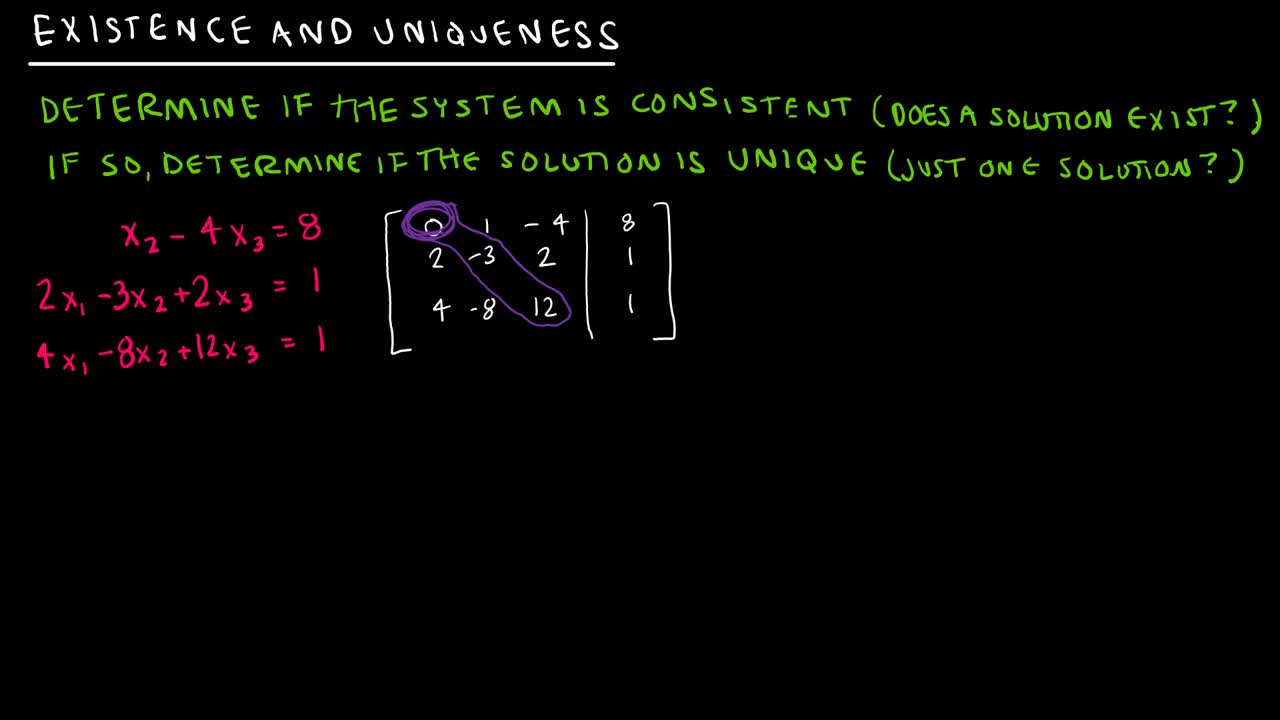 EXISTENCE AND UNIQUENESS
DETERMINE IF THE SYSTEM IS CONSISTENT (DOES A SOLUTION EXIST?)
IF SO, DETERMINE IF THE SOLUTION IS UNIQUE (JUST ONE SOLUTION?)
x₂ - 4x₃ = 8
2x₁ - 3x₂ + 2x₃ = 1
4x₁ - 8x₂ + 12x₃ = 1
0 1 -4 | 8
2 -3 2 | 1
4 -8 12 | 1